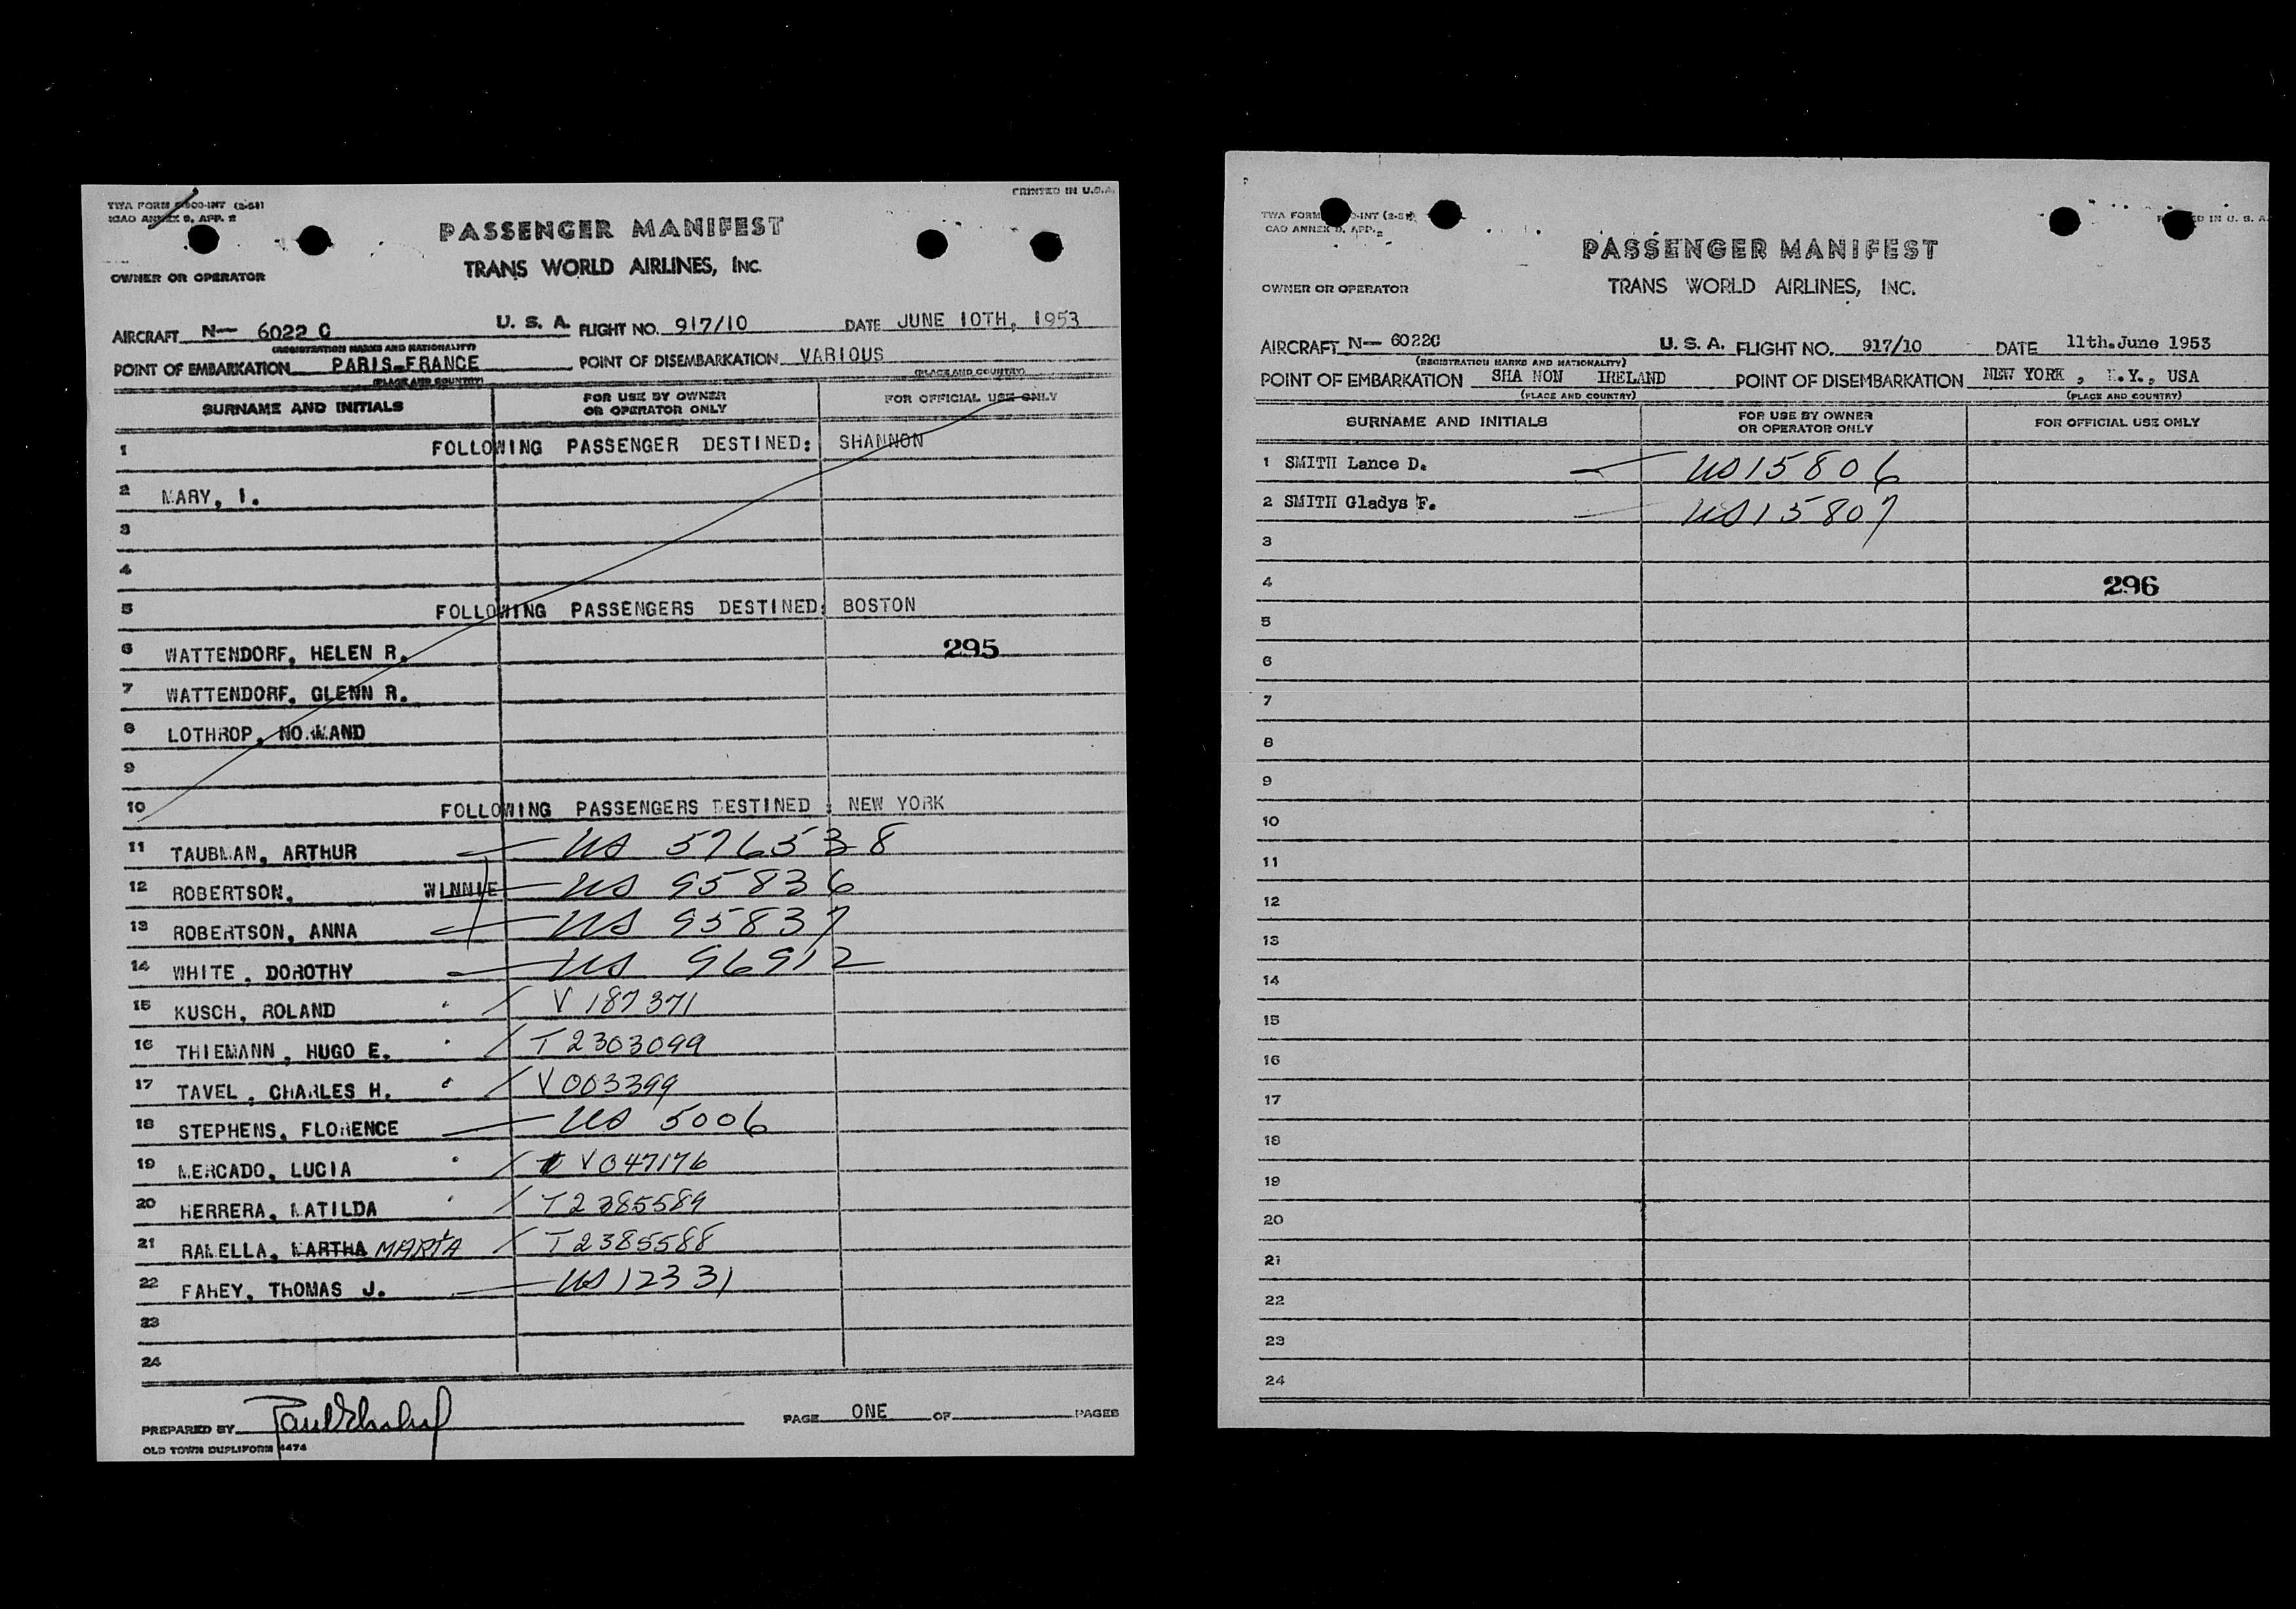 TWA FORM -INT (2-51)
ICAO ANNEX 9, APP. 2
PRINTED IN U.S.A.
PASSENGER MANIFEST
TRANS WORLD AIRLINES, INC.
OWNER OR OPERATOR
AIRCRAFT N— 6022 C U. S. A. FLIGHT NO. 917/10 DATE JUNE 10TH, 1953
(REGISTRATION MARKS AND NATIONALITY)
POINT OF EMBARKATION PARIS-FRANCE POINT OF DISEMBARKATION VARIOUS
(PLACE AND COUNTRY) (PLACE AND COUNTRY)
SURNAME AND INITIALS FOR USE BY OWNER OR OPERATOR ONLY FOR OFFICIAL USE ONLY
1 FOLLOWING PASSENGER DESTINED: SHANNON
2 MARY, I.
3
4
5 FOLLOWING PASSENGERS DESTINED: BOSTON
6 WATTENDORF, HELEN R. 295
7 WATTENDORF, GLENN R.
8 LOTHROP, NORMAND
9
10 FOLLOWING PASSENGERS DESTINED : NEW YORK
11 TAUBMAN, ARTHUR — US 576538
12 ROBERTSON, WINNIE — US 95836
13 ROBERTSON, ANNA — US 95837
14 WHITE, DOROTHY — US 96912
15 KUSCH, ROLAND / V 187371
16 THIEMANN, HUGO E. / T 2303099
17 TAVEL, CHARLES H. / V 003399
18 STEPHENS, FLORENCE — US 5006
19 MERCADO, LUCIA / V 047176
20 HERRERA, MATILDA / T 2385589
21 RAMELLA, MARTHA MARIA / T 2385588
22 FAHEY, THOMAS J. — US 12331
23
24
PREPARED BY PAGE ONE OF PAGES
OLD TOWN DUPLIFORM 4474
TWA FORM -INT (2-51)
CAO ANNEX 9, APP. 2
ED IN U. S. A.
PASSENGER MANIFEST
TRANS WORLD AIRLINES, INC.
OWNER OR OPERATOR
AIRCRAFT N— 6022C U. S. A. FLIGHT NO. 917/10 DATE 11th.June 1953
(REGISTRATION MARKS AND NATIONALITY)
POINT OF EMBARKATION SHA NON IRELAND POINT OF DISEMBARKATION NEW YORK , N.Y., USA
(PLACE AND COUNTRY) (PLACE AND COUNTRY)
SURNAME AND INITIALS FOR USE BY OWNER OR OPERATOR ONLY FOR OFFICIAL USE ONLY
1 SMITH Lance D. — US 15806
2 SMITH Gladys F. — US 15807
3
4 296
5
6
7
8
9
10
11
12
13
14
15
16
17
18
19
20
21
22
23
24